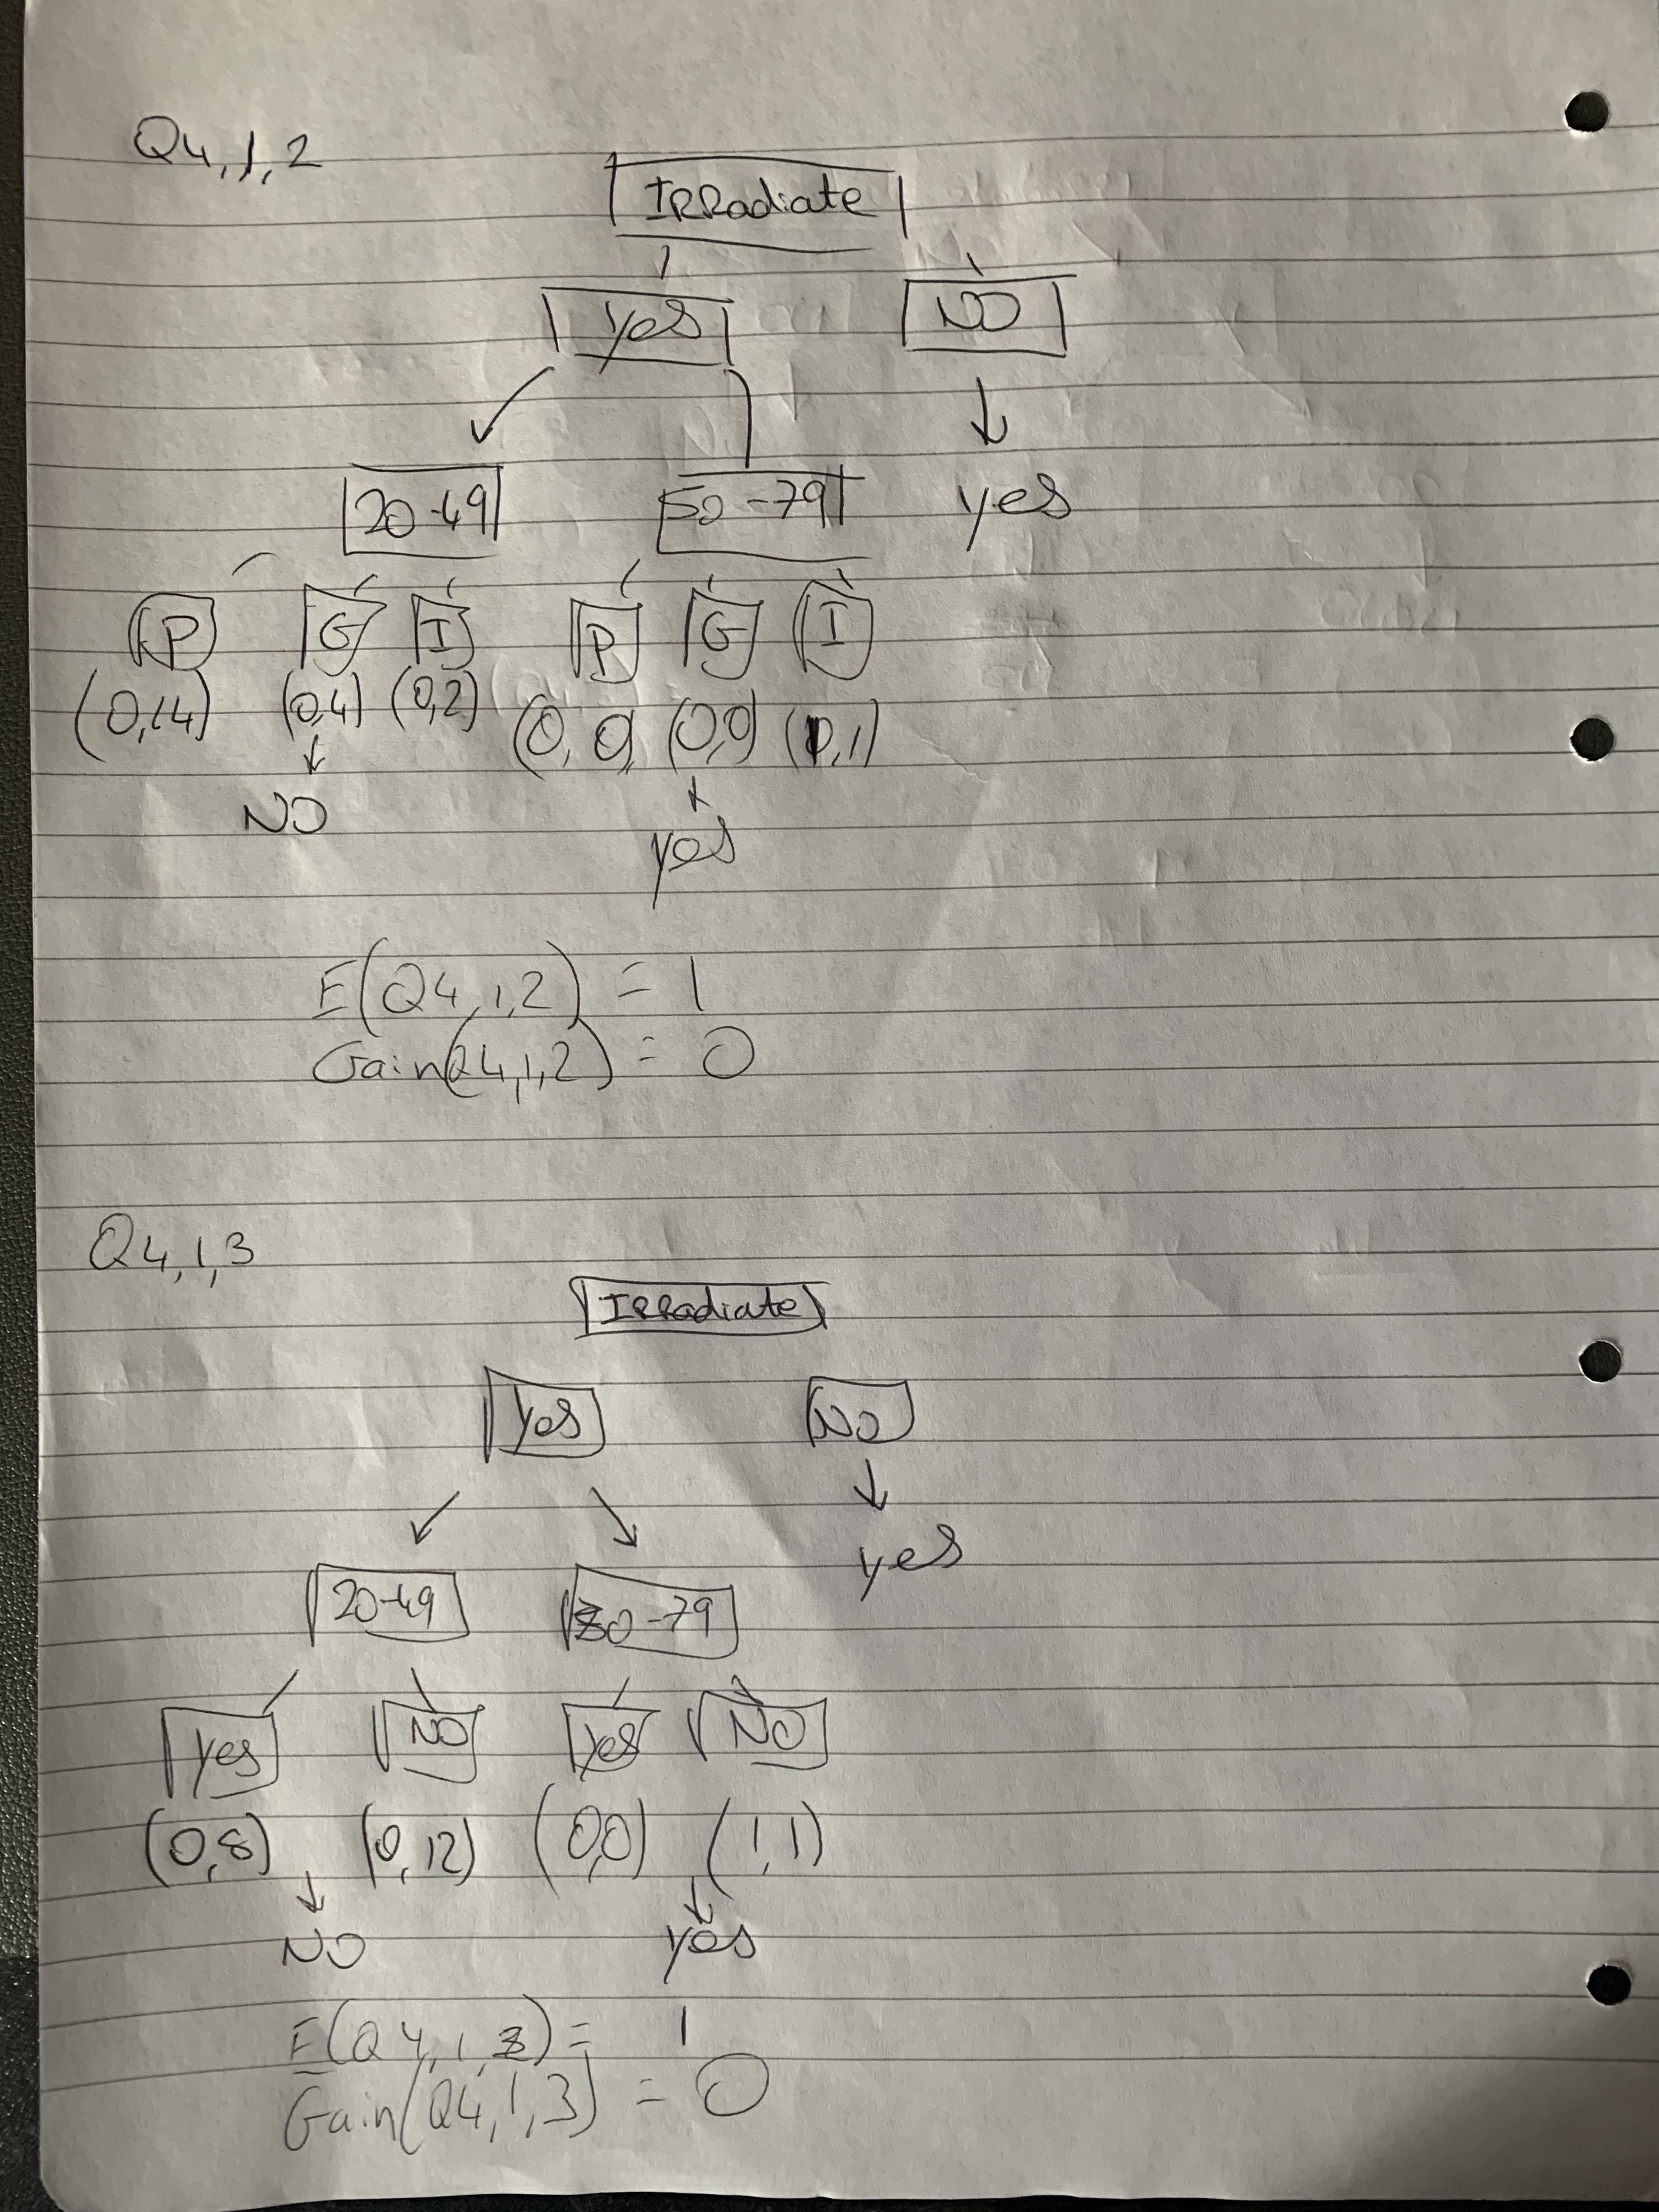 Q4,1,2
IRRadiate
yes NO
20-49 50-79 yes
P G I P G I
(0,14) (0,4) (0,2) (0,0) (0,0) (1,1)
NO yes
E(Q4,1,2) = 1
Gain(Q4,1,2) = 0
Q4,1,3
IRRadiate
yes NO
yes
20-49 50-79
yes NO yes NO
(0,8) (0,12) (0,0) (1,1)
NO yes
E(Q4,1,3) = 1
Gain(Q4,1,3) = 0